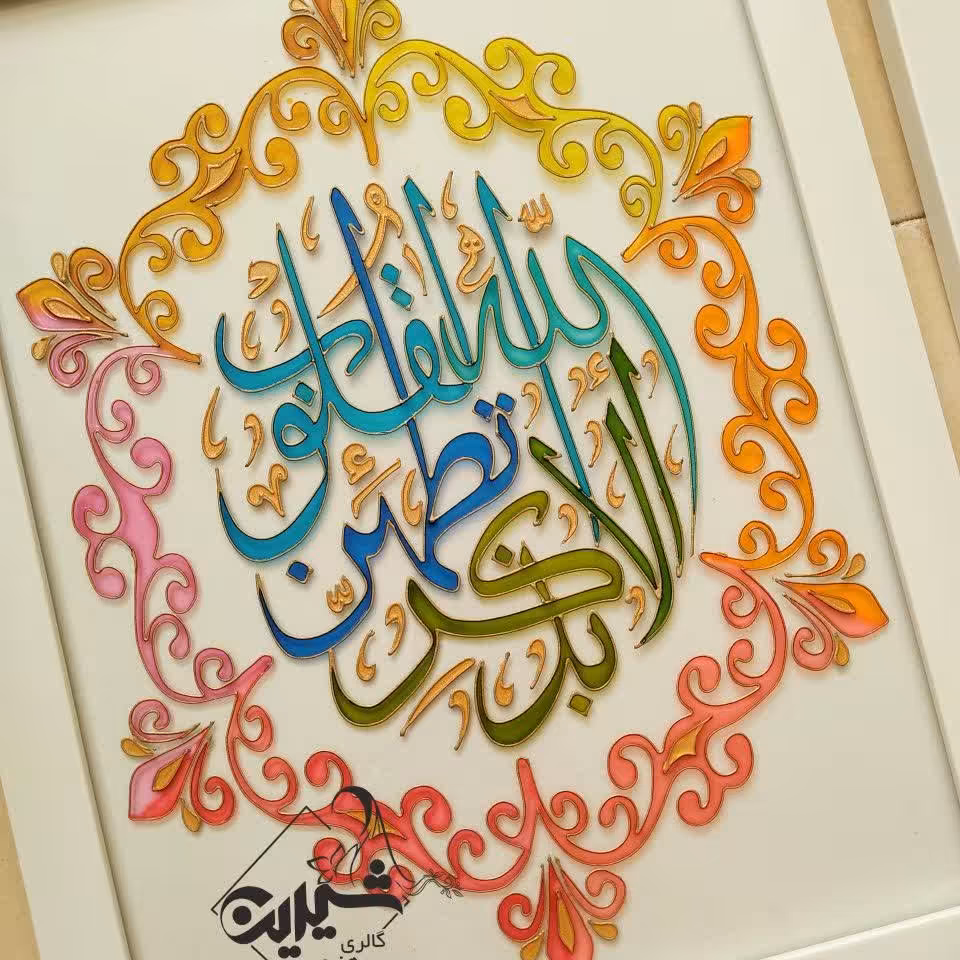 ألا بذكر الله تطمئن القلوب
گالری